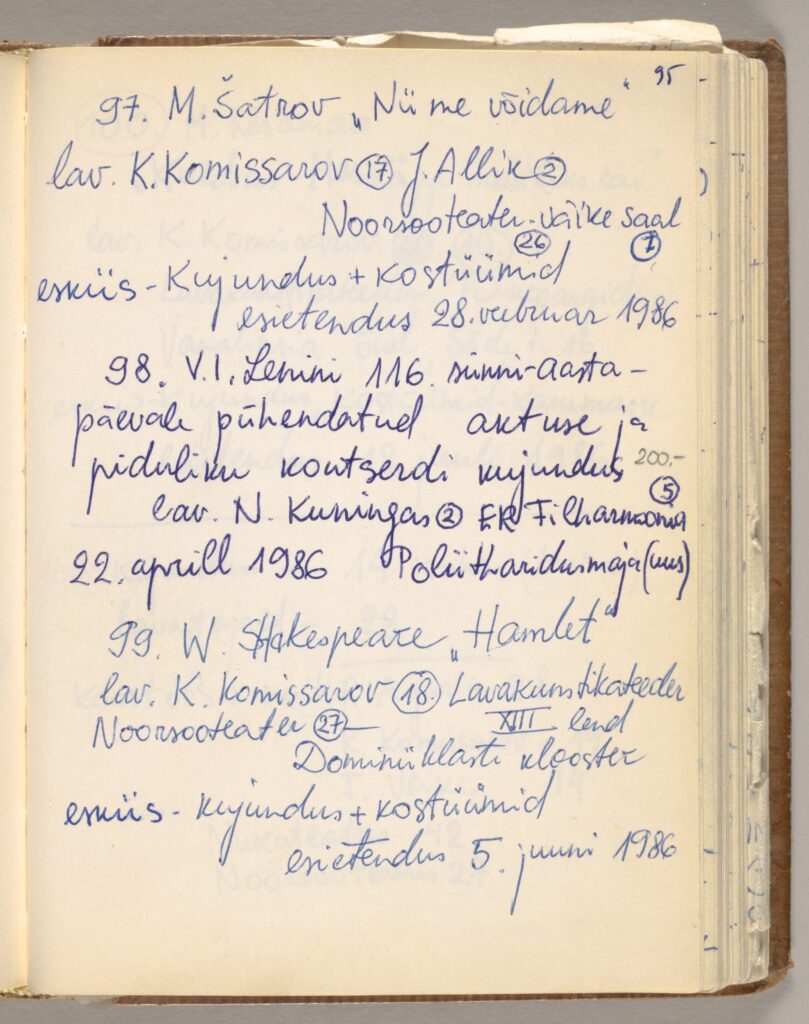 95
97. M. Šatrov „Nii me võidame"
lav. K. Komissarov 17 J. Allik 2
Noorsooteater - väike saal
26 1
esküs - Kujundus + kostüümid
esietendus 28. veebruar 1986
98. V. I. Lenini 116. sünni-aasta-
päevale pühendatud aktuse ja
piduliku kontserdi kujundus 200.-
5
lav. N. Kuningas 2 ER Filharmoonia
22. aprill 1986 Poliitharidusmaja (uus)
99. W. Shakespeare „Hamlet"
lav. K. Komissarov 18. Lavakunstikateeder
Noorsooteater 27 — XIII lend
Dominiiklaste klooster
esküs - kujundus + kostüümid
esietendus 5. juuni 1986